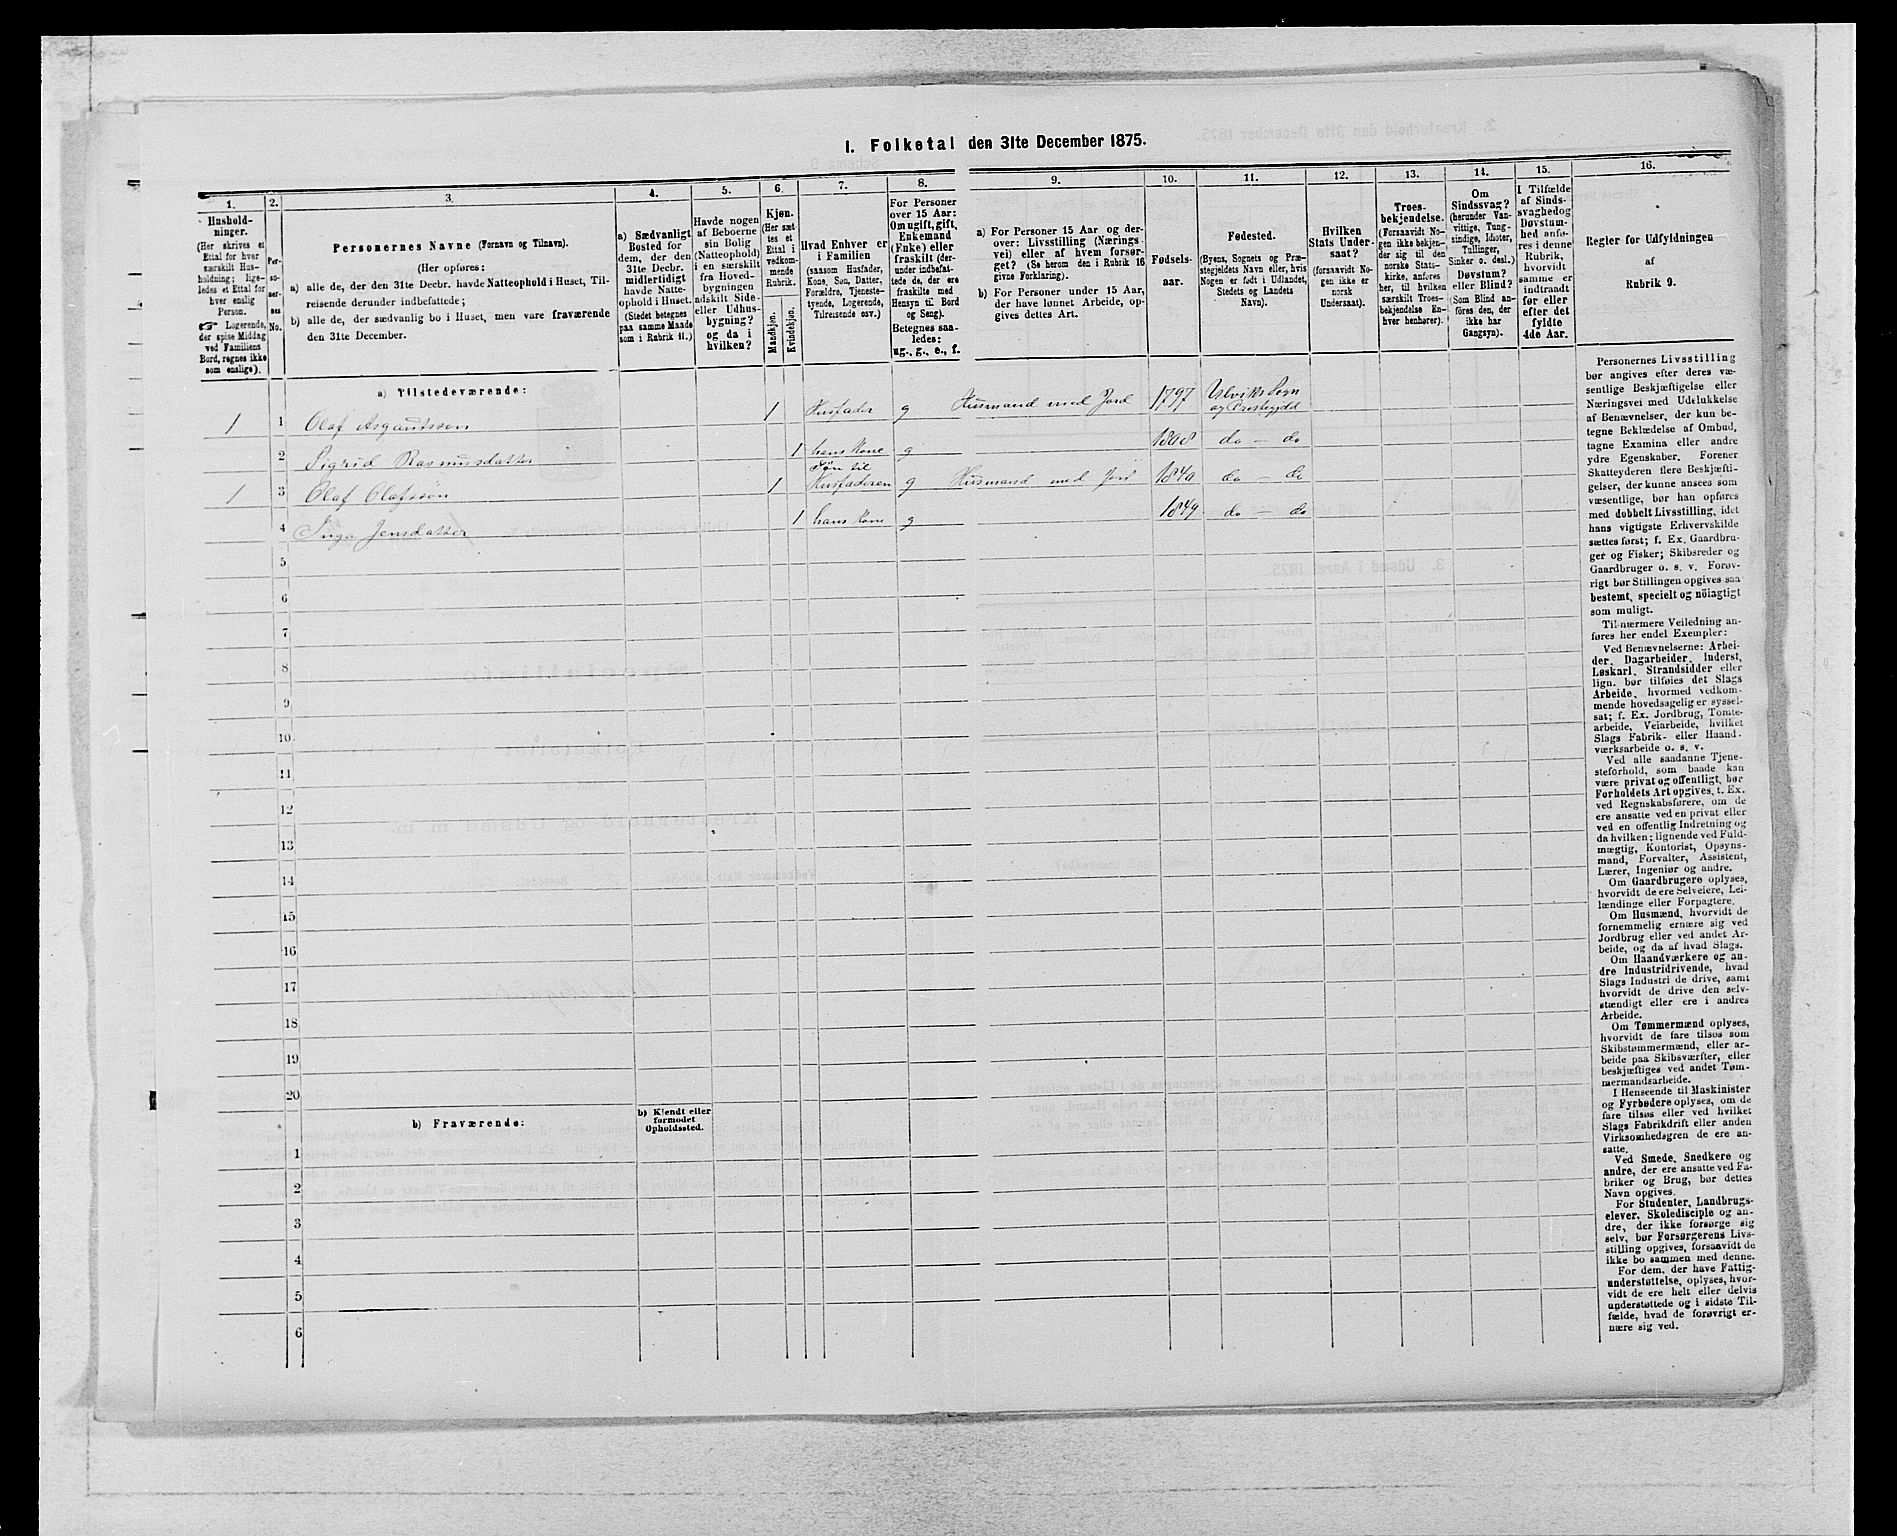 I. Folketal den 31te December 1875.
1.
Hushold-
ninger.
(Her skrives et
Ettal for hver
særskilt Hus-
holdning; lige-
ledes et Ettal for
hver enslig
Person.
☞ Logerende,
der spise Middag
ved Familiens
Bord, regnes ikke
som enslige).
2.
Per-
so-
ner-
nes
No.
3.
Personernes Navne (Fornavn og Tilnavn).
(Her opføres:
a) alle de, der den 31te Decbr. havde Natteophold i Huset, Til-
reisende derunder indbefattede;
b) alle de, der sædvanlig bo i Huset, men vare fraværende
den 31te December.
4.
a) Sædvanligt
Bosted for
dem, der den
31te Decbr.
midlertidigt
havde Natte-
ophold i Huset.
(Stedet betegnes
paa samme Maade
som i Rubrik 11.)
5.
Havde nogen
af Beboerne
sin Bolig
(Natteophold)
i en særskilt
fra Hoved-
bygningen
adskilt Side-
eller Udhus-
bygning?
og da i
hvilken?
6.
Kjøn.
(Her sæt-
tes et
Ettal i
vedkom-
mende
Rubrik.
Mandkjøn.
Kvindekjøn.
7.
Hvad Enhver er
i Familien
(saasom Husfader,
Kone, Søn, Datter,
Forældre, Tjeneste-
tyende, Logerende,
Tilreisende osv.)
8.
For Personer
over 15 Aar:
Om ugift, gift,
Enkemand
(Enke) eller
fraskilt (der-
under indbefat-
tede de, der ere
fraskilte med
Hensyn til Bord
og Seng).
Betegnes saa-
ledes:
ug., g., e., f.
9.
a) For Personer 15 Aar og der-
over: Livsstilling (Nærings-
vei) eller af hvem forsør-
get? (Se herom den i Rubrik 16
givne Forklaring).
b) For Personer under 15 Aar,
der have lønnet Arbeide, op-
gives dettes Art.
10.
Fødsels-
aar.
11.
Fødested.
(Byens, Sognets og Præ-
stegjeldets Navn eller, hvis
Nogen er født i Udlandet,
Stedets og Landets
Navn).
12.
Hvilken
Stats Under-
saat?
(forsaavidt No-
gen ikke er
norsk
Undersaat).
13.
Troes-
bekjendelse.
(Forsaavidt No-
gen ikke bekjen-
der sig til den
norske Stats-
kirke, anføres
her, til hvilken
særskilt Troes-
bekjendelse En-
hver henhører).
14.
Om
Sindssvag?
(herunder Van-
vittige, Tung-
sindige, Idioter,
Tullinger,
Sinker o. desl.)
Døvstum?
eller Blind?
(Som Blind an-
föres den, der
ikke har
Gangsyn).
15.
I Tilfælde
af Sinds-
svaghed og
Døvstum-
hed anfø-
res i denne
Rubrik,
hvorvidt
samme er
indtraadt
før eller
efter det
fyldte
4de Aar.
16.
Regler for Udfyldningen
af
Rubrik 9.
a) Tilstedeværende:
1 1 Olaf Asgautssøn 1 Husfader g Husmand med Jord 1797 Ulviks Sogn
og Præstegjeld
2 Sigrid Rasmusdatter 1 hans Kone g 1808 do — do
1 3 Olaf Olafssøn 1 Søn til
Husfaderen g Husmand med Jord 1840 do — do
4 Inga Jensdatter 1 hans Kone g 1849 do — do
5
6
7
8
9
10
11
12
13
14
15
16
17
18
19
20
b) Fraværende:
b) Kjendt eller
formodet
Opholdssted.
1
2
3
4
5
6
Personernes Livsstilling
bør angives efter deres væ-
sentlige Beskjæftigelse eller
Næringsvei med Udelukkelse
af Benævnelser, der kun be-
tegne Beklædelse af Ombud,
tagne Examina eller andre
ydre Egenskaber. Forener
Skatteyderen flere Beskjæfti-
gelser, der kunne ansees som
væsentlige, bør han opføres
med dobbelt Livsstilling, idet
hans vigtigste Erhvervskilde
sættes først; f. Ex. Gaardbru-
ger og Fisker; Skibsreder og
Gaardbruger o. s. v. Forøv-
rigt bør Stillingen opgives saa
bestemt, specielt og nöiagtigt
som muligt.
Til nærmere Veiledning an-
føres her endel Exempler:
Ved Benævnelserne: Arbei-
der, Dagarbeider, Inderst,
Løskarl, Strandsidder eller
lign. bør tilføies det Slags
Arbeide, hvormed vedkom-
mende hovedsagelig er syssel-
sat; f. Ex. Jordbrug, Tomte-
arbeide, Veiarbeide, hvilket
Slags Fabrik- eller Haand-
værksarbeide o. s. v.
Ved alle saadanne Tjene-
steforhold, som baade kan
være privat og offentligt, bør
Forholdets Art opgives, f. Ex.
ved Regnskabsførere, om de
ere ansatte ved en privat eller
ved en offentlig Indretning og
da hvilken; lignende ved Fuld-
mægtig, Kontorist, Opsyns-
mand, Forvalter, Assistent,
Lærer, Ingeniør og andre.
Om Gaardbrugere oplyses,
hvorvidt de ere Selveiere, Lei-
lændinge eller Forpagtere.
Om Husmænd, hvorvidt de
fornemmelig ernære sig ved
Jordbrug eller ved andet Ar-
beide, og da af hvad Slags.
Om Haandværkere og an-
dre Industridrivende, hvad
Slags Industri de drive, samt
hvorvidt de drive den selv-
stændigt eller ere i andres
Arbeide.
Om Tømmermænd oplyses,
hvorvidt de fare tilsøs som
Skibstømmermænd, eller ar-
beide paa Skibsværfter, eller
beskjæftiges ved andet Tøm-
mermandsarbeide.
I Henseende til Maskinister
og Fyrbødere oplyses, om de
fare tilsøs eller ved hvilket
Slags Fabrikdrift eller anden
Virksomhedsgren de ere an-
satte.
Ved Smede, Snedkere og
andre, der ere ansatte ved Fa-
briker og Brug, bør dettes
Navn opgives.
For Studenter, Landbrugs-
elever, Skoledisciple og an-
dre, der ikke forsørge sig
selv, bør Forsørgerens Livs-
stilling opgives, forsaavidt de
ikke bo sammen med denne.
For dem, der have Fattig-
understøttelse, oplyses, hvor-
vidt de ere helt eller delvis
understøttede og i sidste Til-
fælde, hvad de forøvrigt er-
nære sig ved.